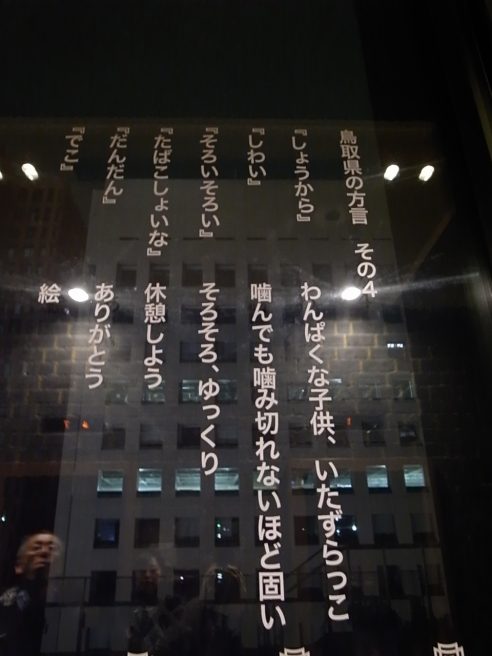 鳥取県の方言 その4
『しょうから』 わんぱくな子供、いたずらっこ
『しわい』 噛んでも噛み切れないほど固い
『そろいそろい』 そろそろ、ゆっくり
『たばこしょいな』 休憩しよう
『だんだん』 ありがとう
『でこ』 絵